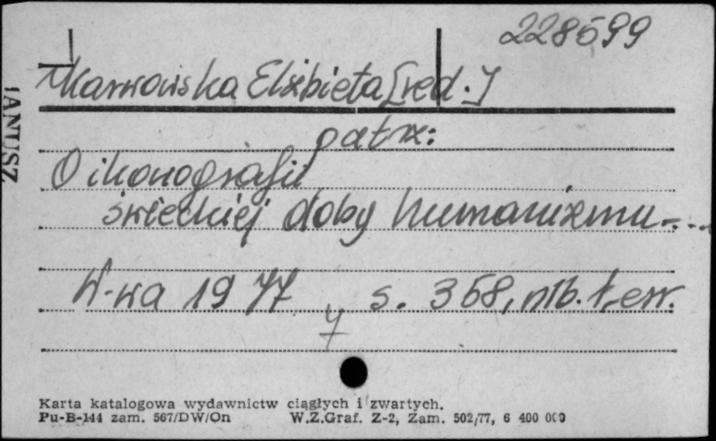 228599
Karwowska Elżbieta [red.]
patrz:
O ikonografii
świeckiej doby humanizmu....
W-wa 1977 s. 368, nlb. 1, err.
Karta katalogowa wydawnictw ciągłych i zwartych.
Pu-B-144 zam. 567/DW/On W.Z.Graf. Z-2, Zam. 502/77, 6 400 000
JANUSZ